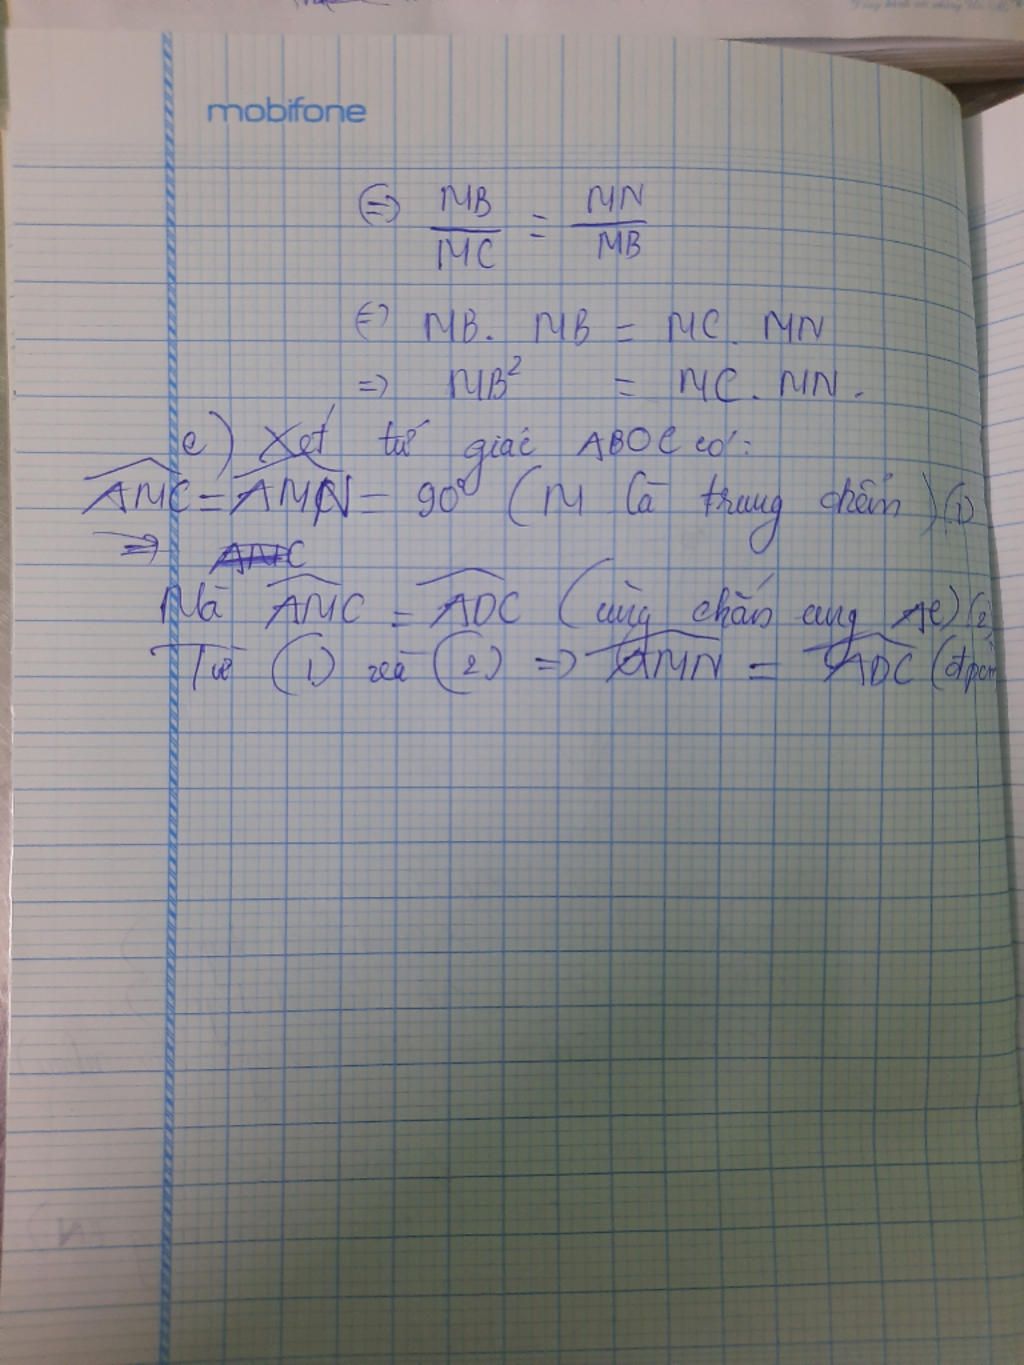 mobifone
⇔ MB/MC = MN/MB
⇔ MB. MB = MC. MN
=> MB² = MC. MN.
c) Xét tứ giác ABOC có:
AMC = AMN = 90° (M là trung điểm) (1)
=>
Mà AMC = ADC (cùng chắn cung AC) (2)
Từ (1) và (2) => AMN = ADC (đpcm